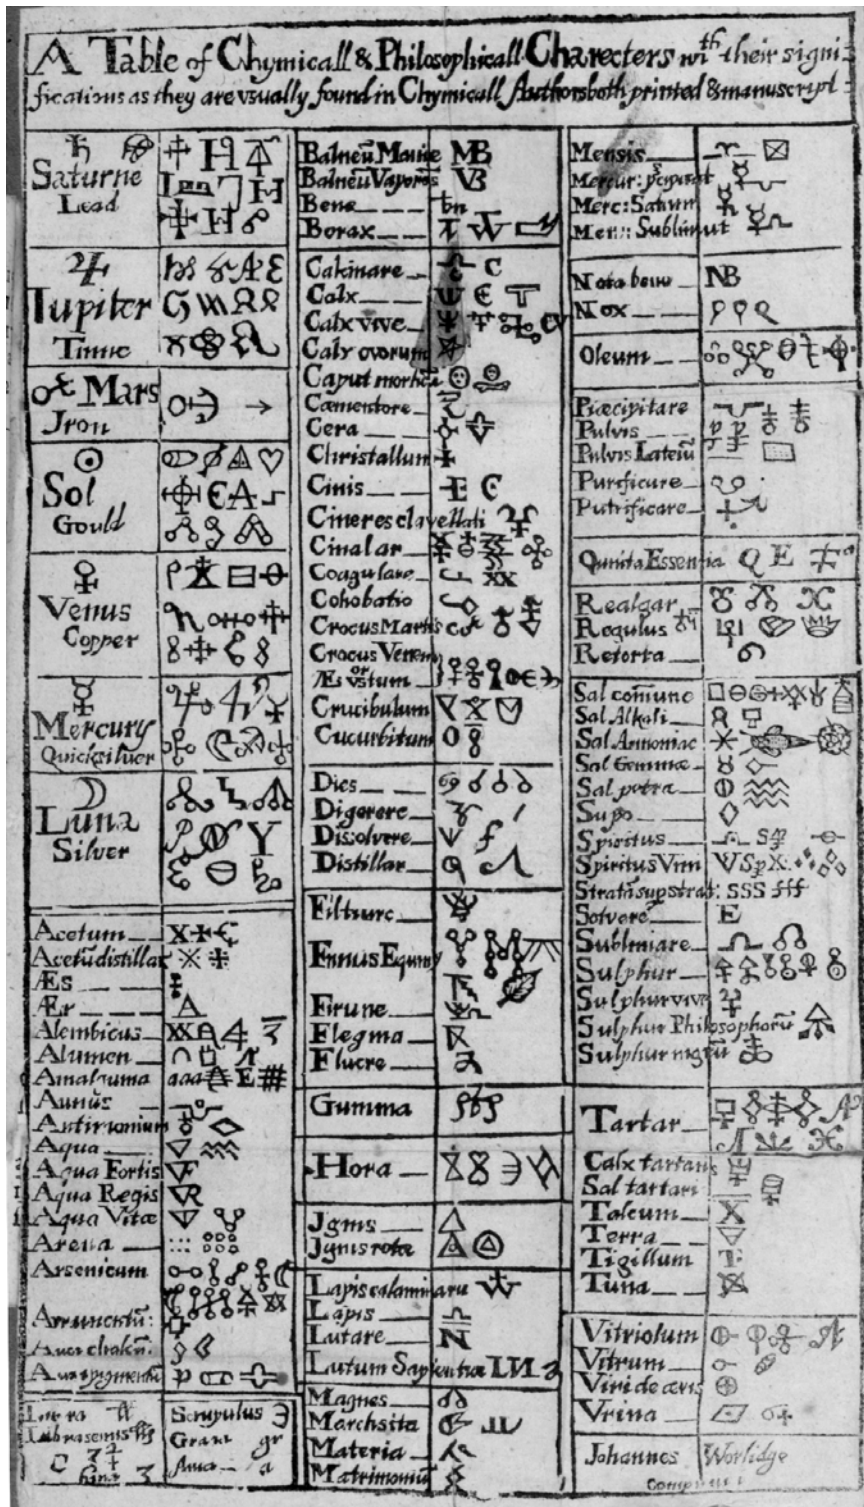 A Table of Chymicall & Philosophicall Charecters wth their signi=
fications as they are vsually found in Chymicall Authors both printed & manuscript
Saturne
Lead
Iupiter
Tinne
Mars
Iron
Sol
Gould
Venus
Copper
Mercury
Quicksiluer
Luna
Silver
Acetum
Acetū distillat
Æs
Ær
Alembicus
Alumen
Amalgama aaa E
Antimonium
Aqua
Aqua Fortis
Aqua Regis
Aqua Vitæ
Arena
Arsenicum
Scrupulus
Grana gr
Ana a
Balneū Mariæ MB
Balneū Vaporis VB
Bene bn
Borax
Calcinare C
Calx
Calx vive
Calx ovorum
Caput mortuū
Cæmentare
Cera
Christallum
Cinis
Cineres clavellati
Cinabar
Coagulare
Cohobatio
Crocus Martis
Crocus Veneris
or
Æs vstum
Crucibulum
Cucurbitum
Dies
Digerere
Dissolvere
Distillar
Filtrare
Fimus Equiny
Flegma
Fluere
Gumma
Hora
Ignis
Ignis rotæ
Lapis calaminaris
Lapis
Lutare
Lutum Sapientiæ
Magnes
Marchsita
Materia
Matrimoniū
Mensis
Merc: Saturn
Merc: Sublimat
Nota bene NB
Nox
Oleum
Præcipitare
Pulvis
Pulvis Laterū
Purificare
Putrificare
Quinta Essentia Q E
Realgar
Regulus
Retorta
Sal comune
Sal Alkali
Sal Armoniac
Sal Gemmæ
Sal petræ
Spiritus
Spiritus Vini
SSS fff
Solvere E
Sublimare
Sulphur
Sulphur vive
Sulphur Philosophorū
Sulphur nigrū
Tartar
Calx tartaris
Sal tartari
Talcum
Terra
Tigillum
Vitriolum
Vitrum
Viride æris
Vrina
Johannes Worlidge